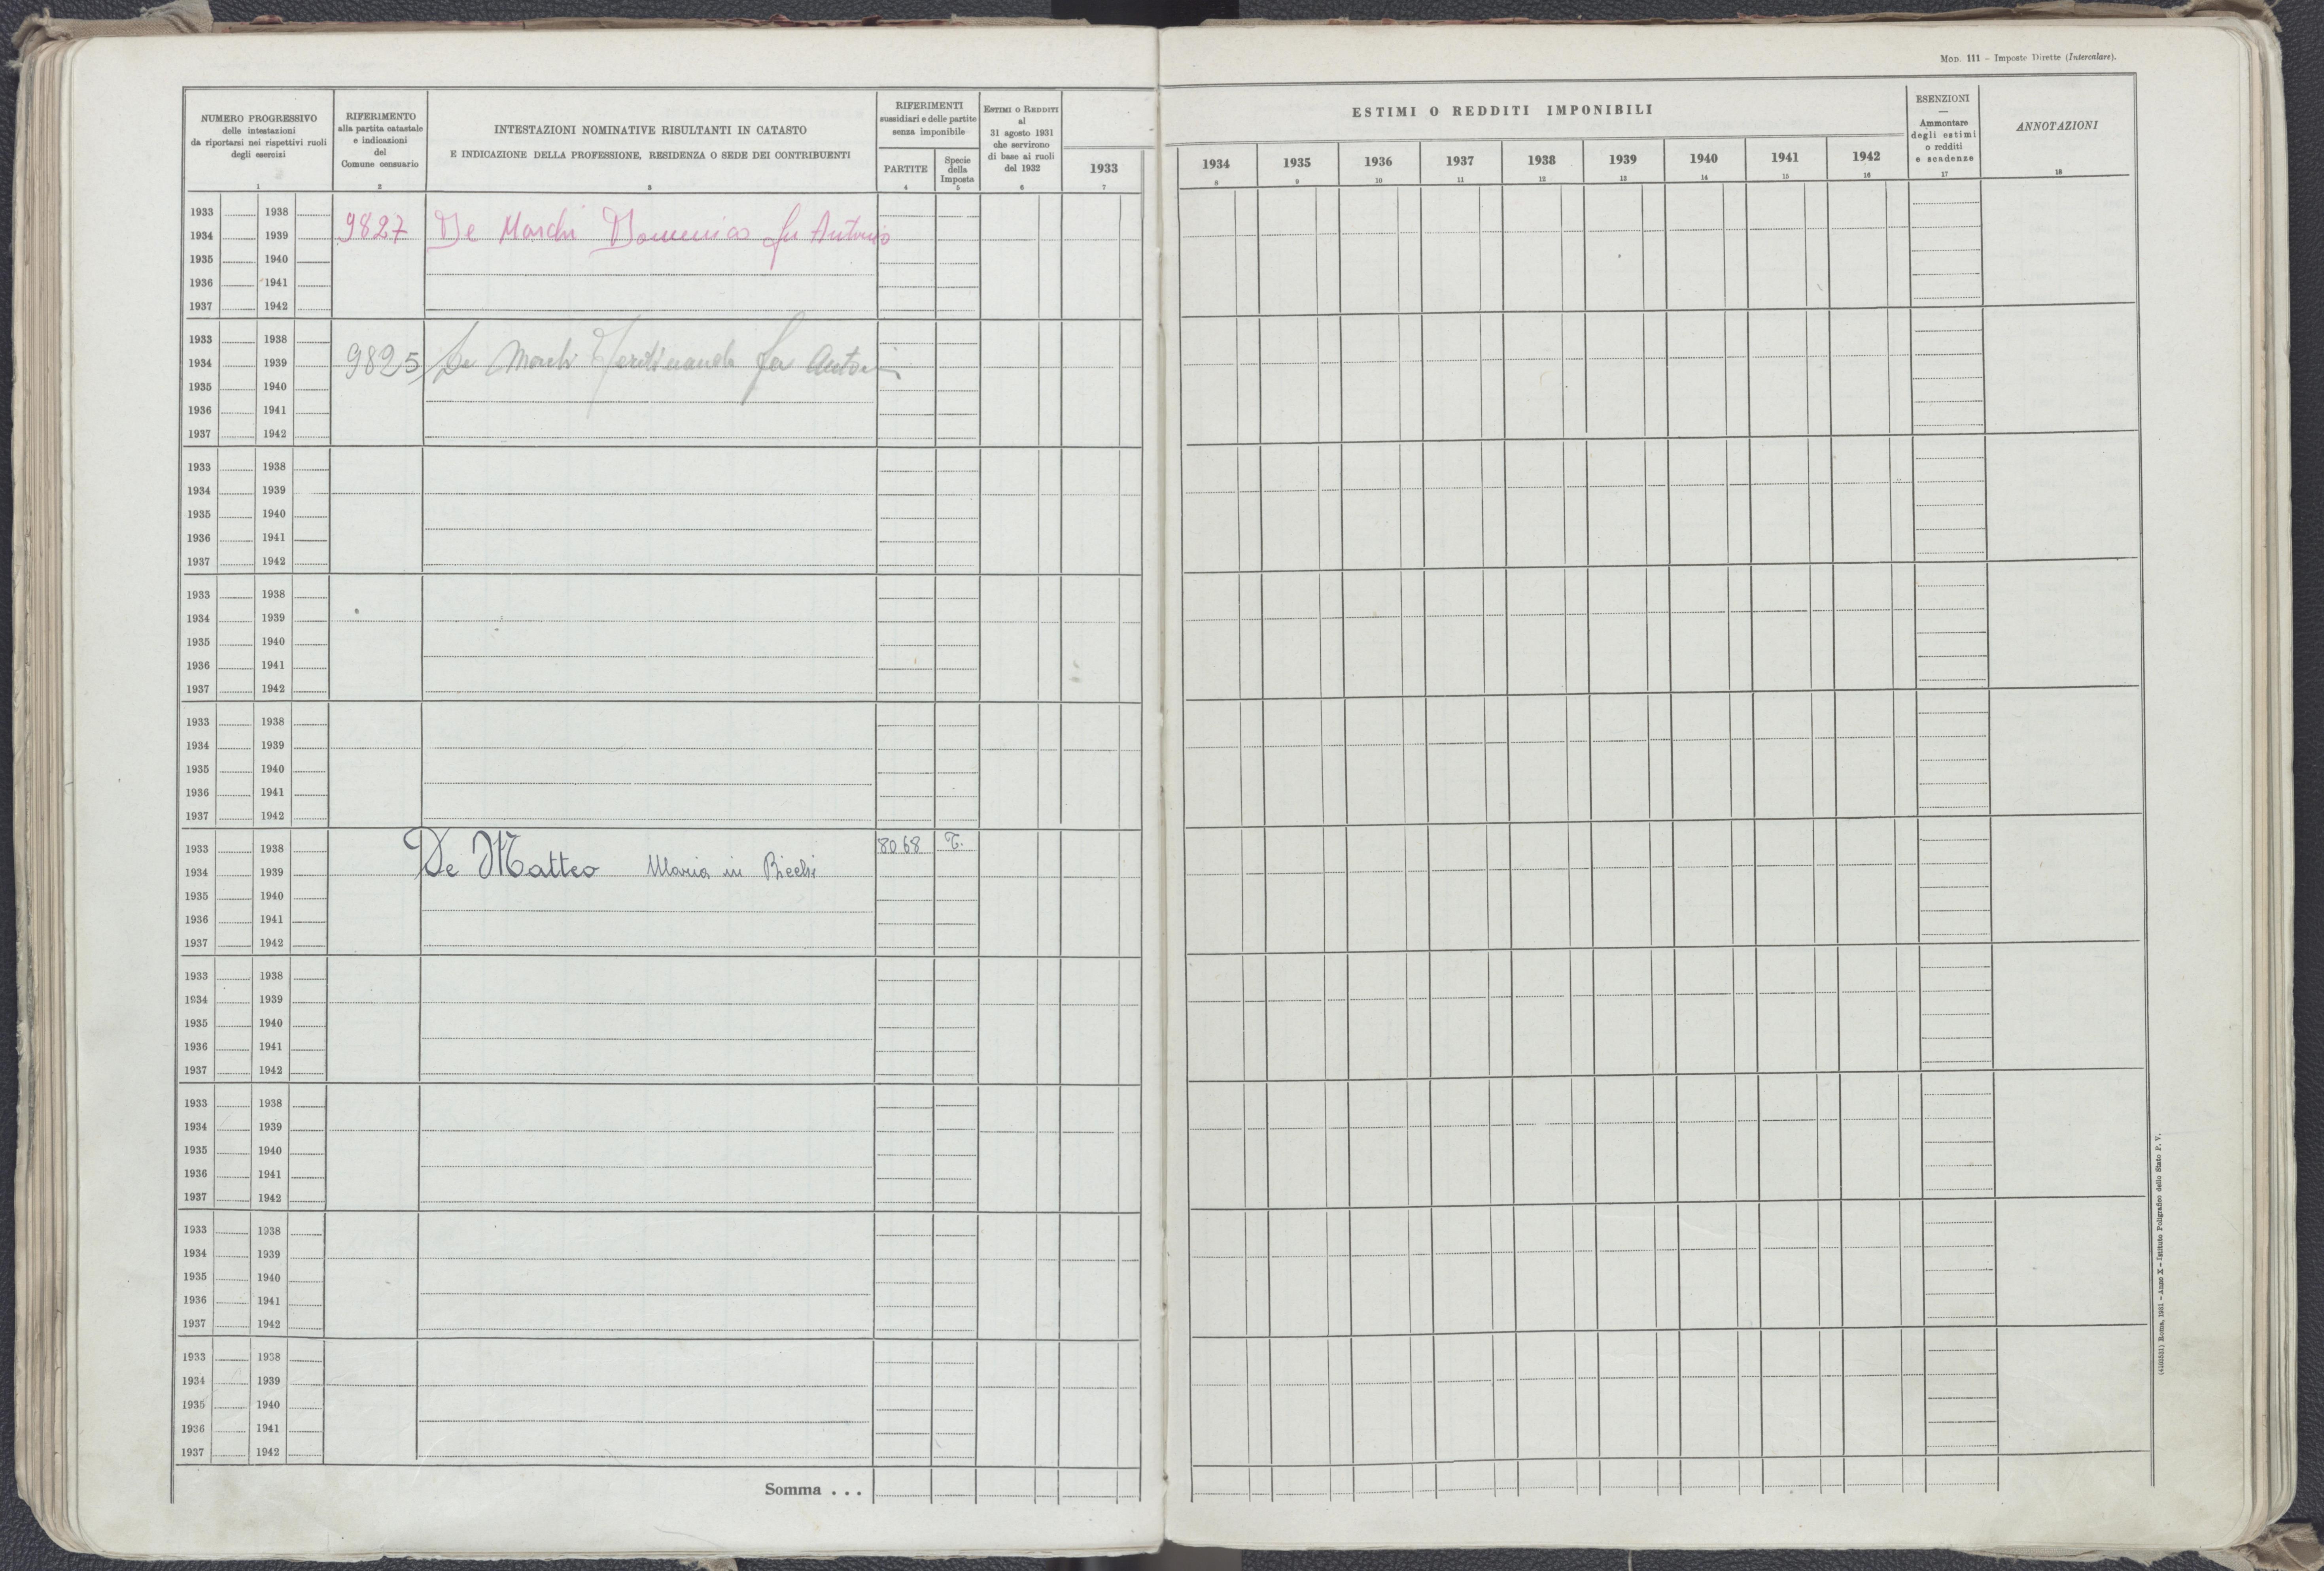 MOD. 111 - Imposte Dirette (Intercalare).
NUMERO PROGRESSIVO
delle intestazioni
da riportarsi nei rispettivi ruoli
degli esercizi
1
RIFERIMENTO
alla partita catastale
e indicazioni
del
Comune censuario
2
INTESTAZIONI NOMINATIVE RISULTANTI IN CATASTO
E INDICAZIONE DELLA PROFESSIONE, RESIDENZA O SEDE DEI CONTRIBUENTI
3
RIFERIMENTI
sussidiari e delle partite
senza imponibile
PARTITE
4
Specie
della
Imposta
5
ESTIMI O REDDITI
al
31 agosto 1931
che servirono
di base ai ruoli
del 1932
6
1933
7
ESTIMI O REDDITI IMPONIBILI
1934 1935 1936 1937 1938 1939 1940 1941 1942
8 9 10 11 12 13 14 15 16
ESENZIONI
—
Ammontare
degli estimi
o redditi
e scadenze
17
ANNOTAZIONI
18
1933 1938
1934 1939 9827 De Marchi Domenico fu Antonio
1935 1940
1936 1941
1937 1942
1933 1938
1934 1939 9825 De Marchi fu
1935 1940
1936 1941
1937 1942
1933 1938
1934 1939
1935 1940
1936 1941
1937 1942
1933 1938
1934 1939
1935 1940
1936 1941
1937 1942
1933 1938
1934 1939
1935 1940
1936 1941
1937 1942
1933 1938 8068 T.
1934 1939 De Matteo Maria in
1935 1940
1936 1941
1937 1942
1933 1938
1934 1939
1935 1940
1936 1941
1937 1942
1933 1938
1934 1939
1935 1940
1936 1941
1937 1942
1933 1938
1934 1939
1935 1940
1936 1941
1937 1942
1933 1938
1934 1939
1935 1940
1936 1941
1937 1942
Somma . . .
Roma, 1931 - Anno X - Istituto Poligrafico dello Stato P. V.